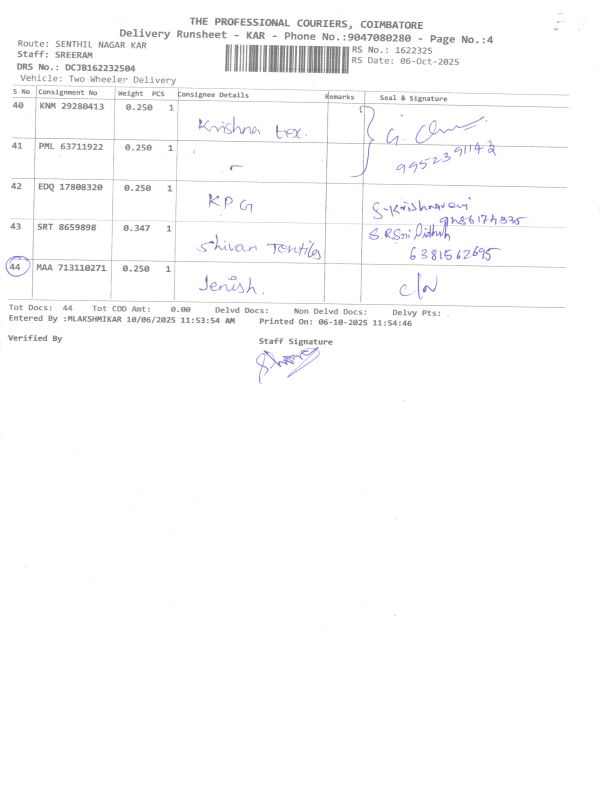 THE PROFESSIONAL COURIERS, COIMBATORE
Delivery Runsheet - KAR - Phone No.:9047080280 - Page No.:4
Route: SENTHIL NAGAR KAR
RS No.: 1622325
Staff: SREERAM
RS Date: 06-Oct-2025
DRS No.: DCJB162232504
Vehicle: Two Wheeler Delivery
S No Consignment No Weight PCS Consignee Details Remarks Seal & Signature
40 KNM 29280413 0.250 1 Krishna tex.
41 PML 63711922 0.250 1 9952391142
42 EDQ 17808320 0.250 1 KPG S-Krishnaveni
43 SRT 8659898 0.347 1 Shivan Textiles
6381562695
44 MAA 713110271 0.250 1 Jenish.
Tot Docs: 44 Tot COD Amt: 0.00 Delvd Docs: Non Delvd Docs: Delvy Pts: .
Entered By :MLAKSHMIKAR 10/06/2025 11:53:54 AM Printed On: 06-10-2025 11:54:46
Verified By Staff Signature